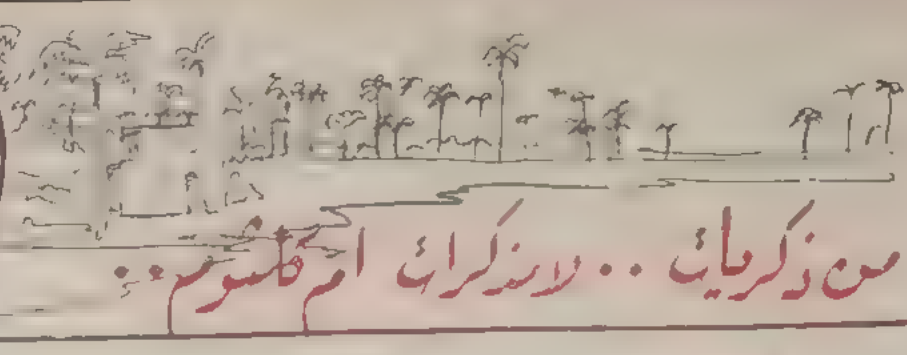 من ذكريات .. ومذكرات ام كلثوم ..